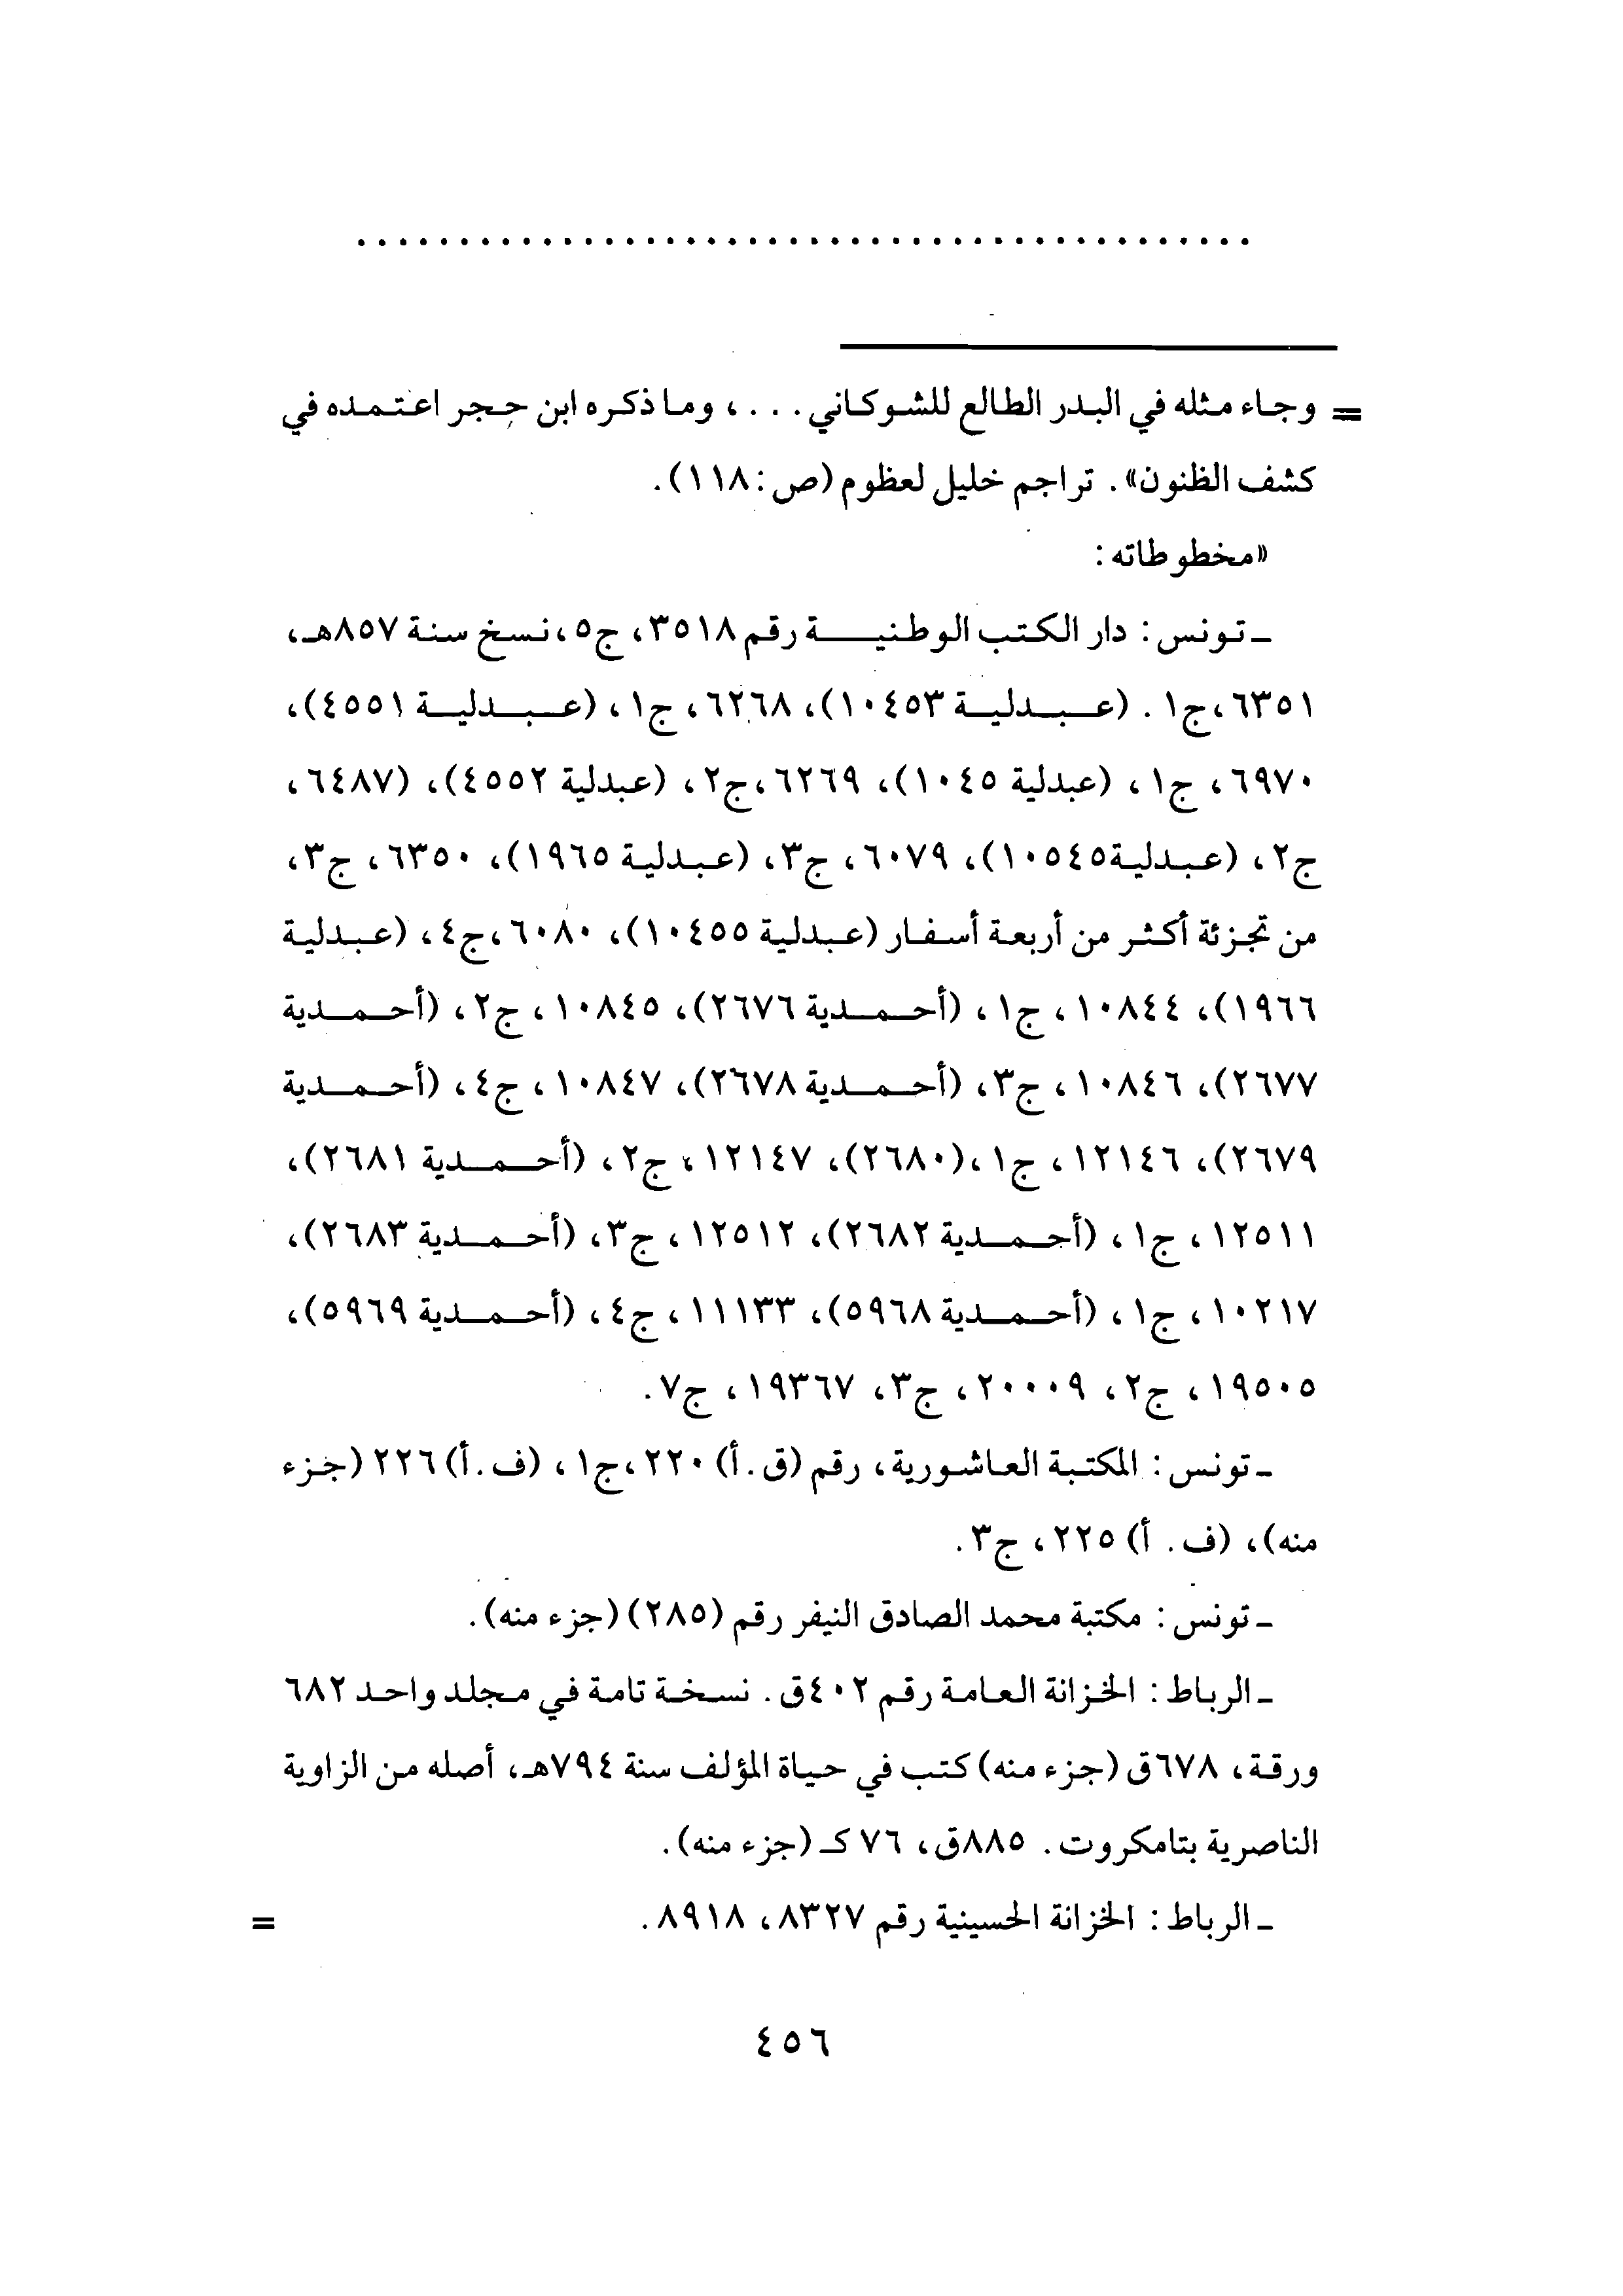 ............................................
= وجاء مثله في البدر الطالع للشوكاني . . . ، وما ذكره ابن حجر اعتمده في
كشف الظنون» . تراجم خليل لعظوم (ص: ١١٨).
«مخطوطاته :
ـ تونس : دار الكتب الوطنية رقم ٣٥١٨، ج٥، نسخ سنة ٨٥٧هـ،
٦٣٥١، ج١ . (عبدلية ١٠٤٥٣)، ٦٢٦٨، ج١، (عبدلية ٤٥٥١)،
٦٩٧٠، ج١، (عبدلية ١٠٤٥)، ٦٢٦٩، ج٢، (عبدلية ٤٥٥٢)، (٦٤٨٧،
ج٢، (عبدلية ١٠٥٤٥)، ٦٠٧٩، ج٣، (عبدلية ١٩٦٥)، ٦٣٥٠، ج٣،
من تجزئة أكثر من أربعة أسفار (عبدلية ١٠٤٥٥)، ٦٠٨٠، ج٤، (عبدلية
١٩٦٦)، ١٠٨٤٤، ج١، (أحمدية ٢٦٧٦)، ١٠٨٤٥، ج٢، (أحمدية
٢٦٧٧)، ١٠٨٤٦، ج٣، (أحمدية ٢٦٧٨)، ١٠٨٤٧، ج٤، (أحمدية
٢٦٧٩)، ١٢١٤٦، ج١، (٢٦٨٠)، ١٢١٤٧، ج٢، (أحمدية ٢٦٨١)،
١٢٥١١، ج١، (أحمدية ٢٦٨٢)، ١٢٥١٢، ج٣، (أحمدية ٢٦٨٣)،
١٠٢١٧، ج١، (أحمدية ٥٩٦٨)، ١١١٣٣، ج٤، (أحمدية ٥٩٦٩)،
١٩٥٠٥، ج٢، ٢٠٠٠٩، ج٣، ١٩٣٦٧، ج٧.
ـ تونس : المكتبة العاشورية، رقم (ق.أ) ٢٢٠، ج١، (ف.أ) ٢٢٦ (جزء
منه)، (ف. أ) ٢٢٥، ج٣.
ـ تونس : مكتبة محمد الصادق النيفر رقم (٢٨٥) (جزء منه).
ـ الرباط : الخزانة العامة رقم ٤٠٢ق . نسخة تامة في مجلد واحد ٦٨٢
ورقة، ٦٧٨ق (جزء منه) كتب في حياة المؤلف سنة ٧٩٤هـ، أصله من الزاوية
الناصرية بتامكروت . ٨٨٥ق، ٧٦ كـ (جزء منه).
ـ الرباط : الخزانة الحسينية رقم ٨٣٢٧، ٨٩١٨ . =
٤٥٦